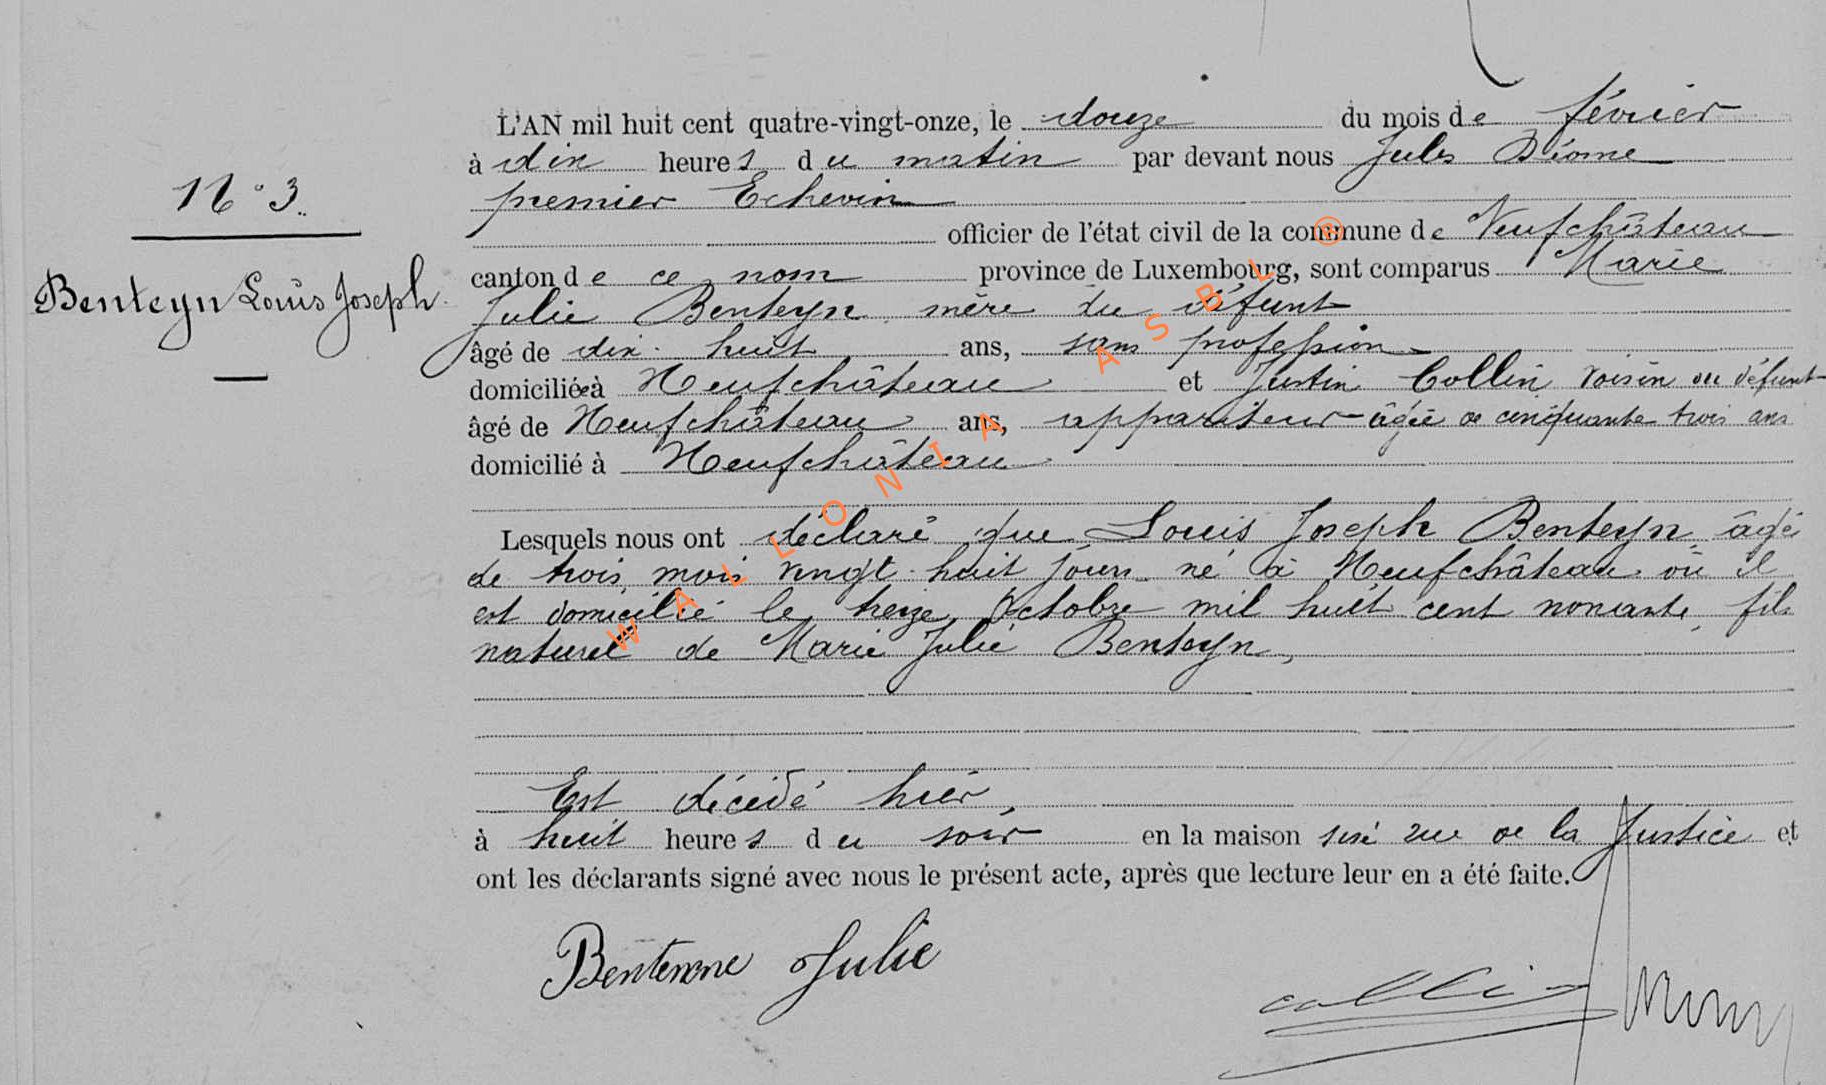 L'AN mil huit cent quatre-vingt-onze, le douze du mois de février
à dix heures du matin par devant nous Jules
N° 3
premier Echevin
officier de l'état civil de la commune de Neufchâteau
Benteyn Louis Joseph
canton de ce nom province de Luxembourg, sont comparus Marie
Julie Benteyn mère du défunt
âgé de dix-huit ans, sans profession
domiciliée à Neufchâteau et Justin Collin voisin du défunt
âgé de Neufchâteau ans, appariteur âgé de cinquante trois ans
domicilié à Neufchâteau
Lesquels nous ont déclaré que Louis Joseph Benteyn âgé
de trois mois vingt-huit jours né à Neufchâteau où il
est domicilié le treize Octobre mil huit cent nonante, fils
naturel de Marie Julie Benteyn,
Est décédé hier,
à huit heures du soir en la maison sise rue de la Justice et
ont les déclarants signé avec nous le présent acte, après que lecture leur en a été faite.
Julie
Collin
WALLONIA ASBL ®